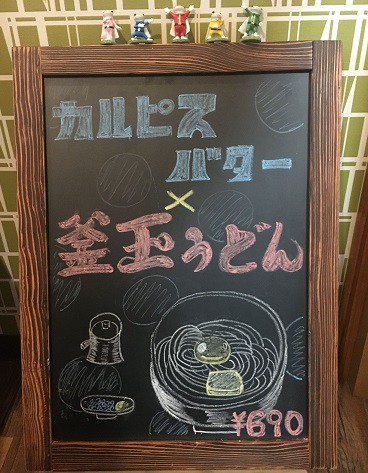 カルピス
バター
×
釜玉うどん
¥690